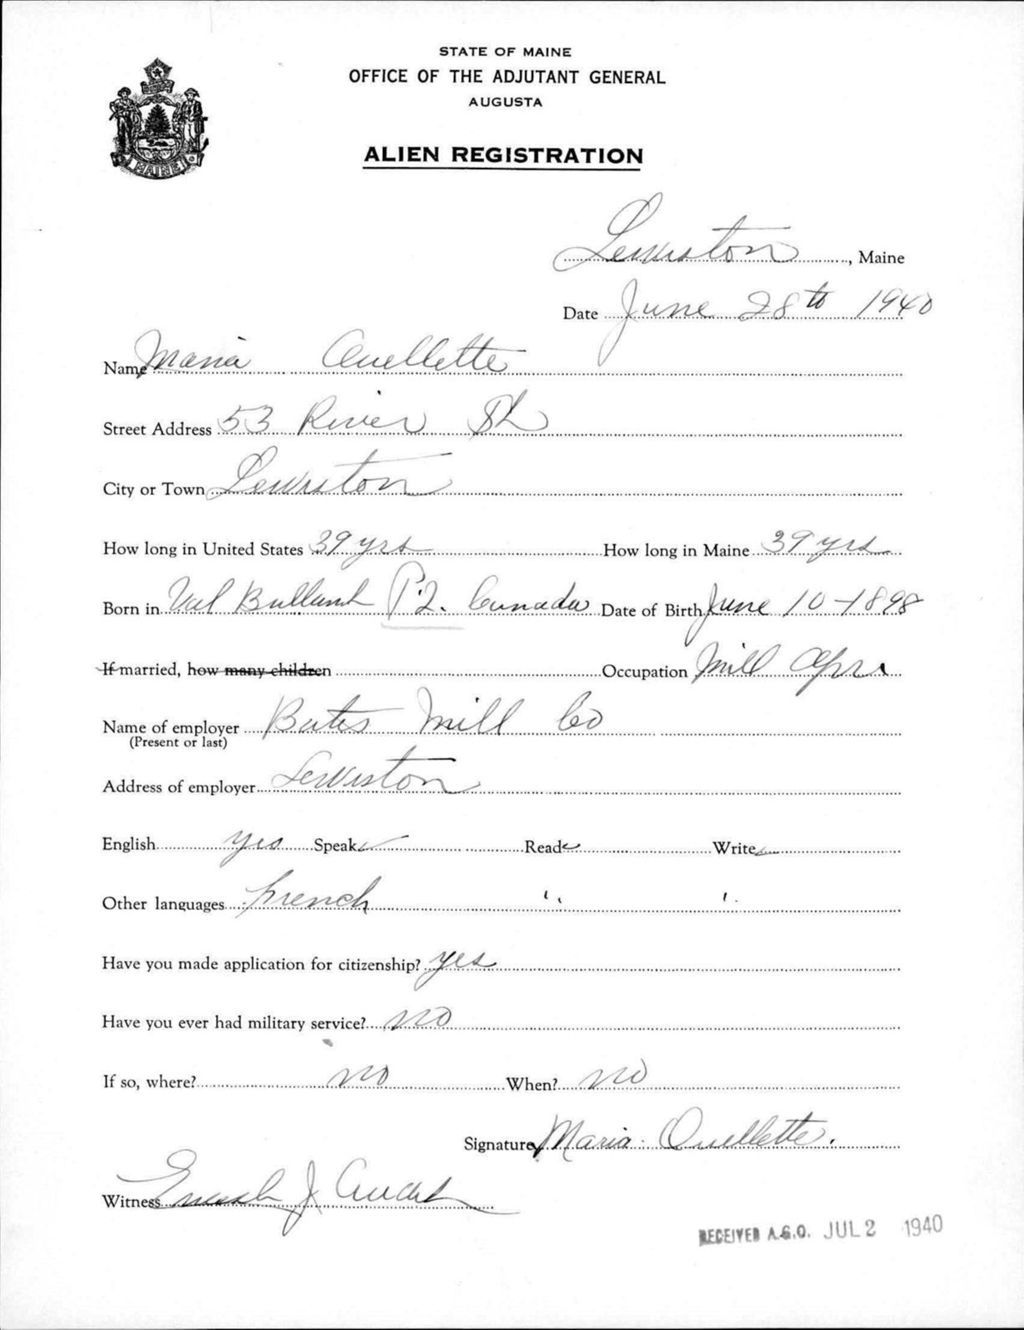 STATE OF MAINE
OFFICE OF THE ADJUTANT GENERAL
AUGUSTA
ALIEN REGISTRATION
MAINE
Lewiston, Maine
Date June 28th 1940
Name Maria Ouellette
Street Address 53 River St
City or Town Lewiston
How long in United States 39 yrs How long in Maine 39 yrs
Born in Val P.Q. Canada Date of Birth June 10-1898
If married, how many children Occupation Mill Opr
Name of employer Bates Mill Co
(Present or last)
Address of employer Lewiston
English yes Speak Read Write
Other languages French " "
Have you made application for citizenship? yes
Have you ever had military service? no
If so, where? no When? no
Signature Maria Ouellette.
Witness J
RECEIVED A.G.O. JUL 2 1940